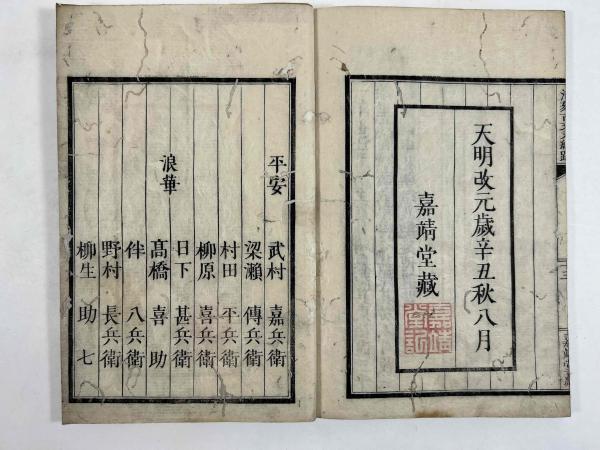 天明改元歲辛丑秋八月
嘉靖堂藏
平安
武村 嘉兵衛
梁瀨 傳兵衛
村田 平兵衛
柳原 喜兵衛
浪華
日下 甚兵衛
髙橋 喜助
伴 八兵衛
野村 長兵衛
柳生 助七